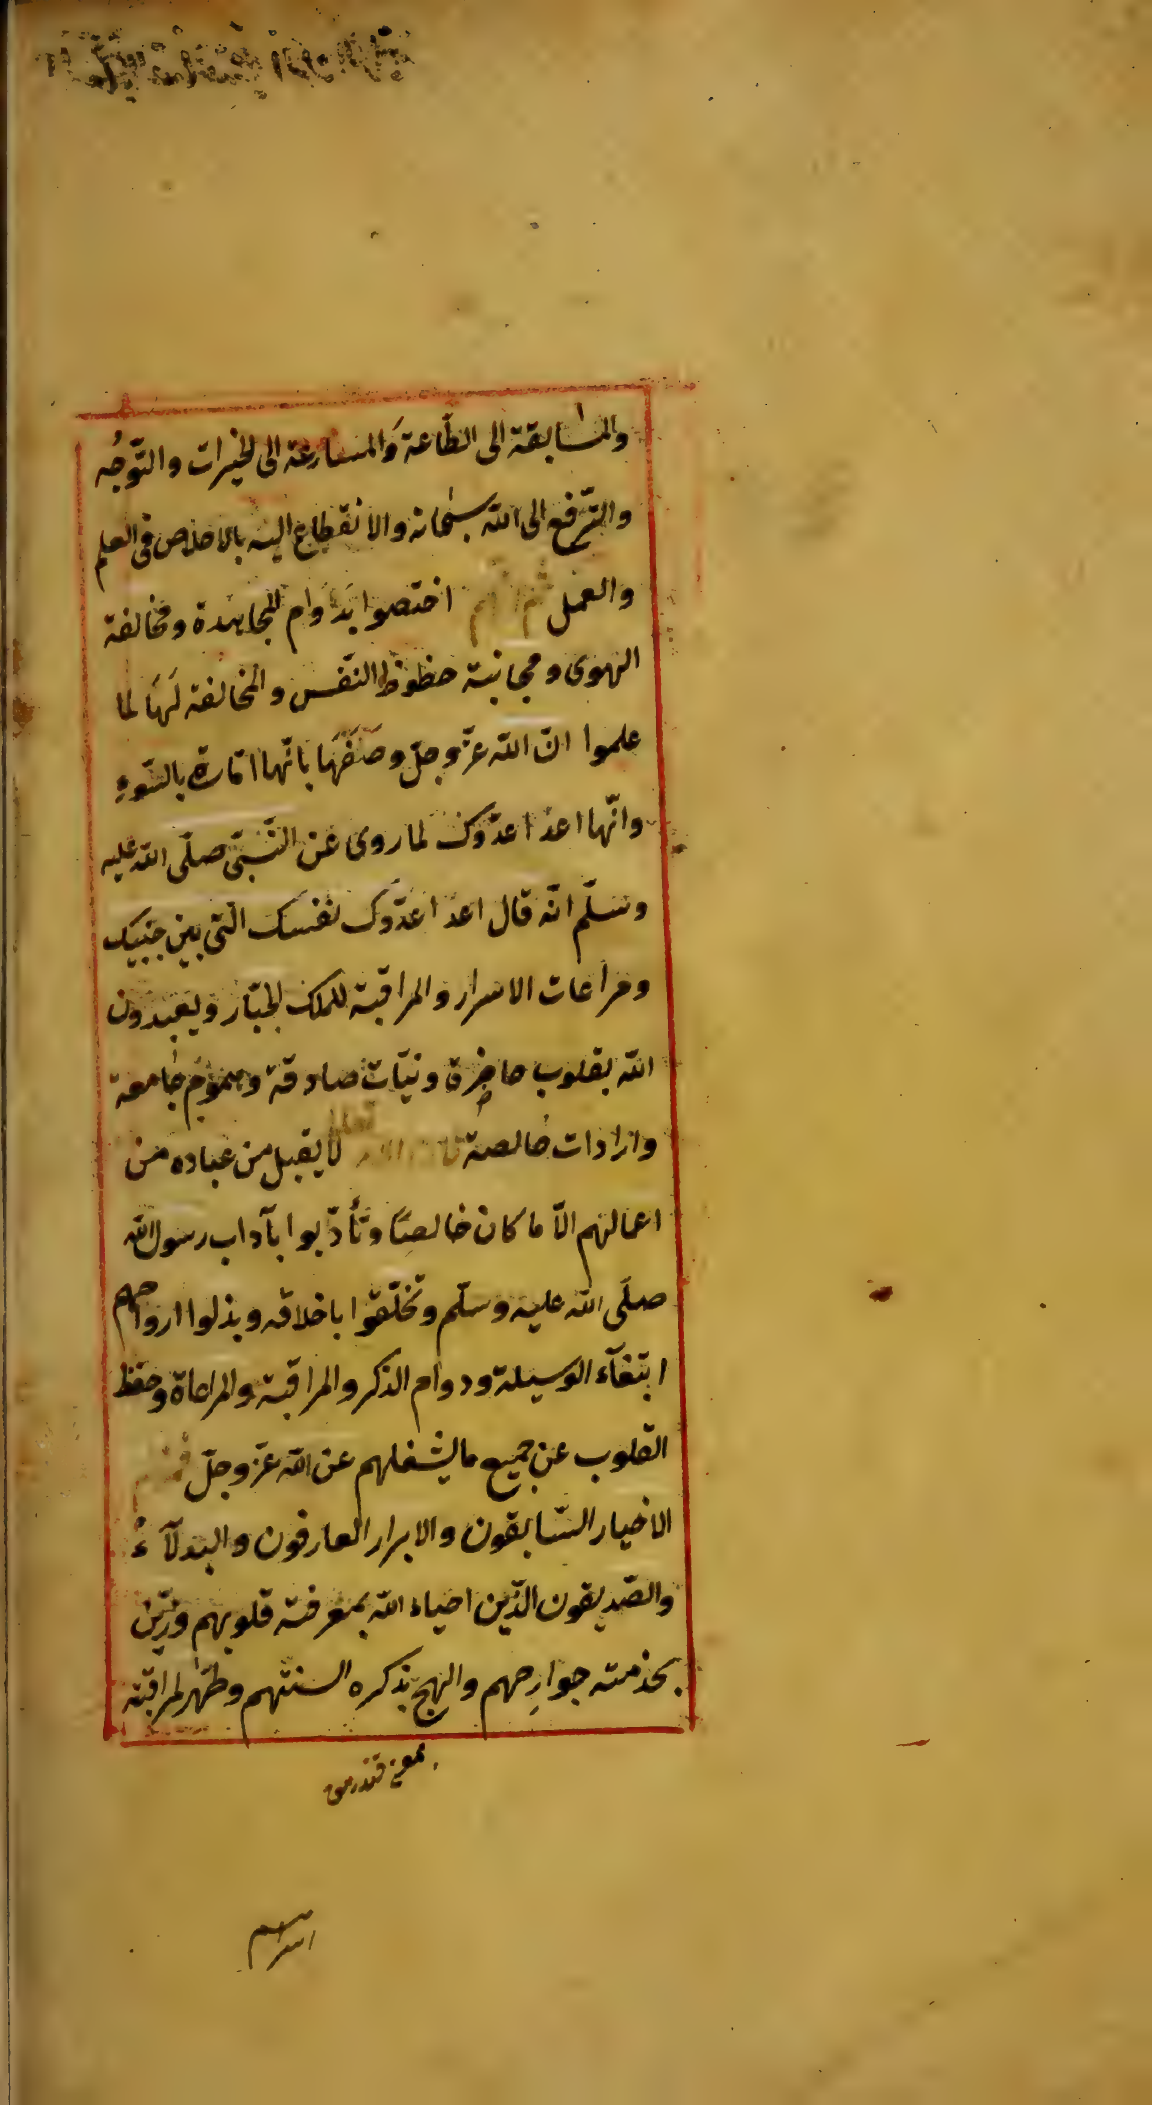 والمسابقة الى الطّاعة والمسارعة الى الخيرات والتّوجّه
والترفّع الى الله سبحانه والانقطاع اليه بالاخلاص فى العلم
والعمل ثم انهم اختصوا بدوام المجاهدة ومخالفة
الهوى ومجانبة حظوظ النّفس والمخالفة لَهَا لما
علموا انّ الله عزّ وجلّ وصَفَهَا بانّها امّارة بالسّوءِ
وانّها اعدا عدّوك لما روى عن النّبىّ صلّى الله عليه
وسلّم انّه قال اعدا عدّوك نفسك الّتى بين جنبيك
ومراعات الاسرار والمراقبة للملك الجبّار ويعبدون
الله بقلوب حاضرة ونيّات صادقة وهموم جامعة
وارادات خالصة فان الله تعالى لا يقبل من عباده من
اعمالهم الّا ما كان خالصًا وتأدّبوا بآداب رسول الله
صلّى الله عليه وسلّم وتخلّقوا باخلاقه وبذلوا ارواحهم
ابتغآء الوسيلة ودوام الذكر والمراقبة والمراعاة وحفظ
القلوب عن جميع ما يشغلهم عن الله عزّ وجلّ فمنهم
الاخيار السّابقون والابرار العارفون والبدلآءُ
والصّديقون الذّين احياء الله بمعرفته قلوبهم وزيّن
بخدمته جوارحهم والهج بذكره السنتهم وطهّر لمراقبته
اسرارهم